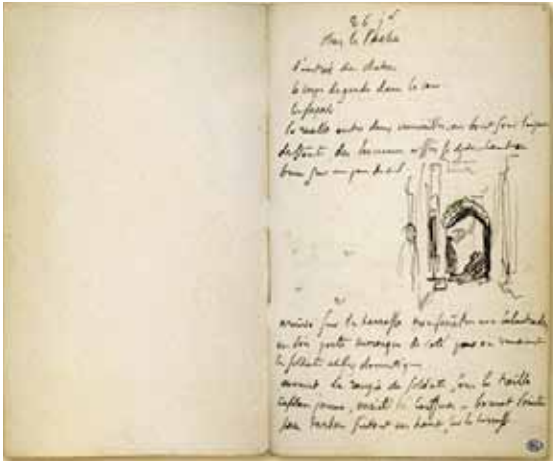 26 j
chez le Pacha
l'entrée du chateau
le corps de garde dans la cour
la façade
la ruelle entre deux murailles, au bout sous l'espèce
des hommes assis se détachant en
brun sur un peu de ciel.
arrivée sur la terrasse trois fenêtres avec balustrade
en bois porte moresque de coté par où venaient
les soldats et les domestiques
avant la rangée de soldats sous la treille
caftan jaune, variété de coiffures, bonnet pointu
sans turban surtout en haut sur la terrasse